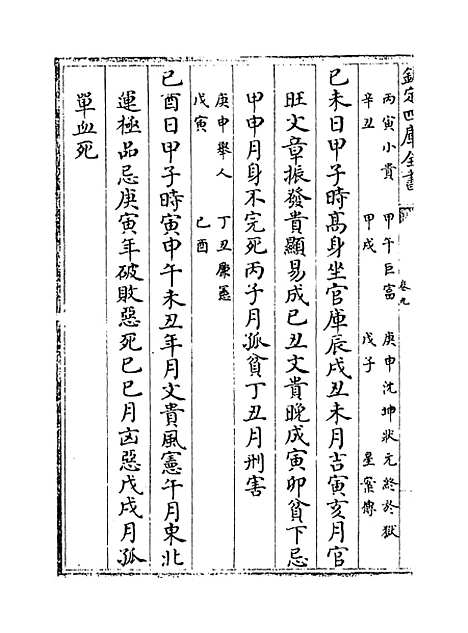 欽定四庫全書 卷九
丙寅小貴 甲午巨富 庚申沈坤狀元終於獄
辛丑 甲戌 戊子 星案傳
已未日甲子時髙身坐官庫辰戌丑未月吉寅亥月官
旺文章振發貴顯易成已丑文貴晚成寅卯貧下忌
甲申月身不完死丙子月孤貧丁丑月刑害
庚申舉人 丁丑廉憲
戊寅 已酉
已酉日甲子時寅申午未丑年月文貴風憲午月東北
運極品忌庚寅年破敗惡死已已月凶惡戊戌月孤
單血死